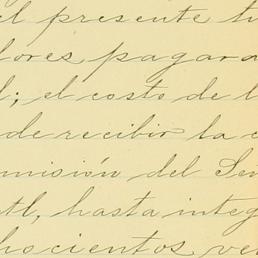 el presente tu
lores pagara
l; el costo de l
de recibir la c
misión del Señ
atl, hasta integ
hocientos ve